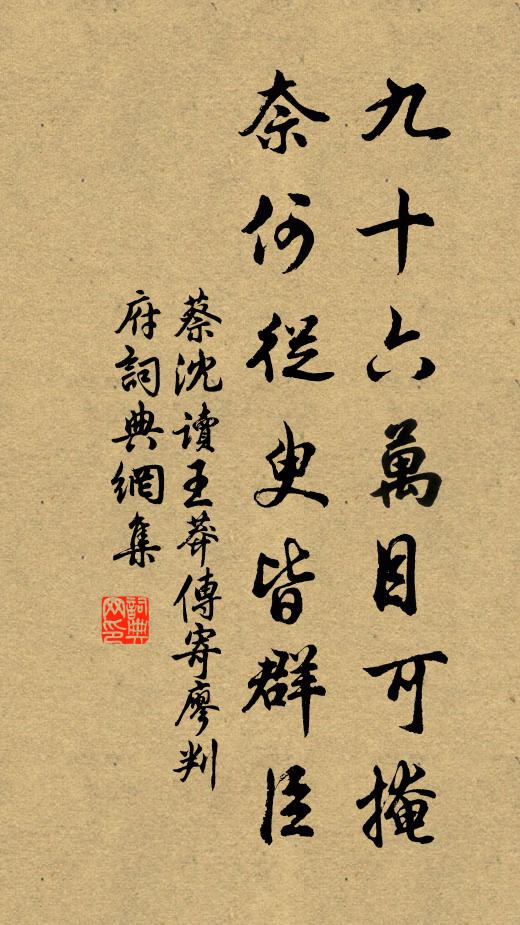 九十六萬目可掩
奈何從叟皆群臣
蔡沈讀王莽傳寄廖判
府詞典網集
詞典
网印